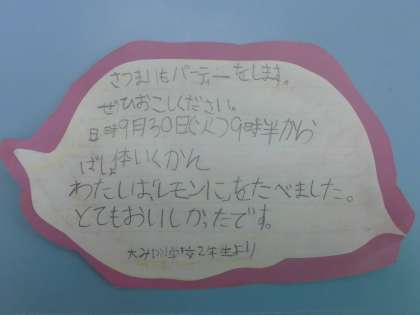 さつまいもパーティーをします。
ぜひおこしください。
日時9月30日(火)9時半から
ばしょ体いくかん
わたしは「レモンに」をたべました。
とてもおいしかったです。
大みか小学校2年生より